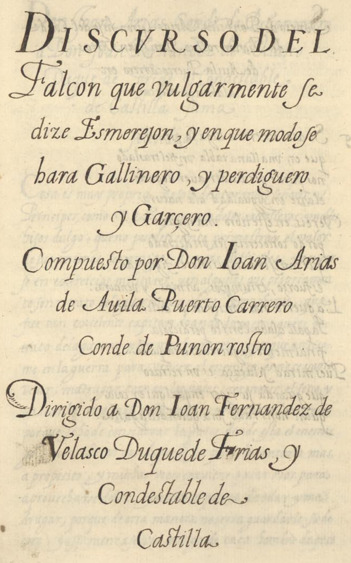 DISCVRSO DEL
Falcon que vulgarmente se
dize Esmerejon, y en que modo se
hara Gallinero, y perdiguero
y Garçero.
Compuesto por Don Ioan Arias
de Auila Puerto Carrero
Conde de Punon rostro
Dirigido a Don Ioan Fernandez de
Velasco Duque de Frias, y
Condestable de
Castilla